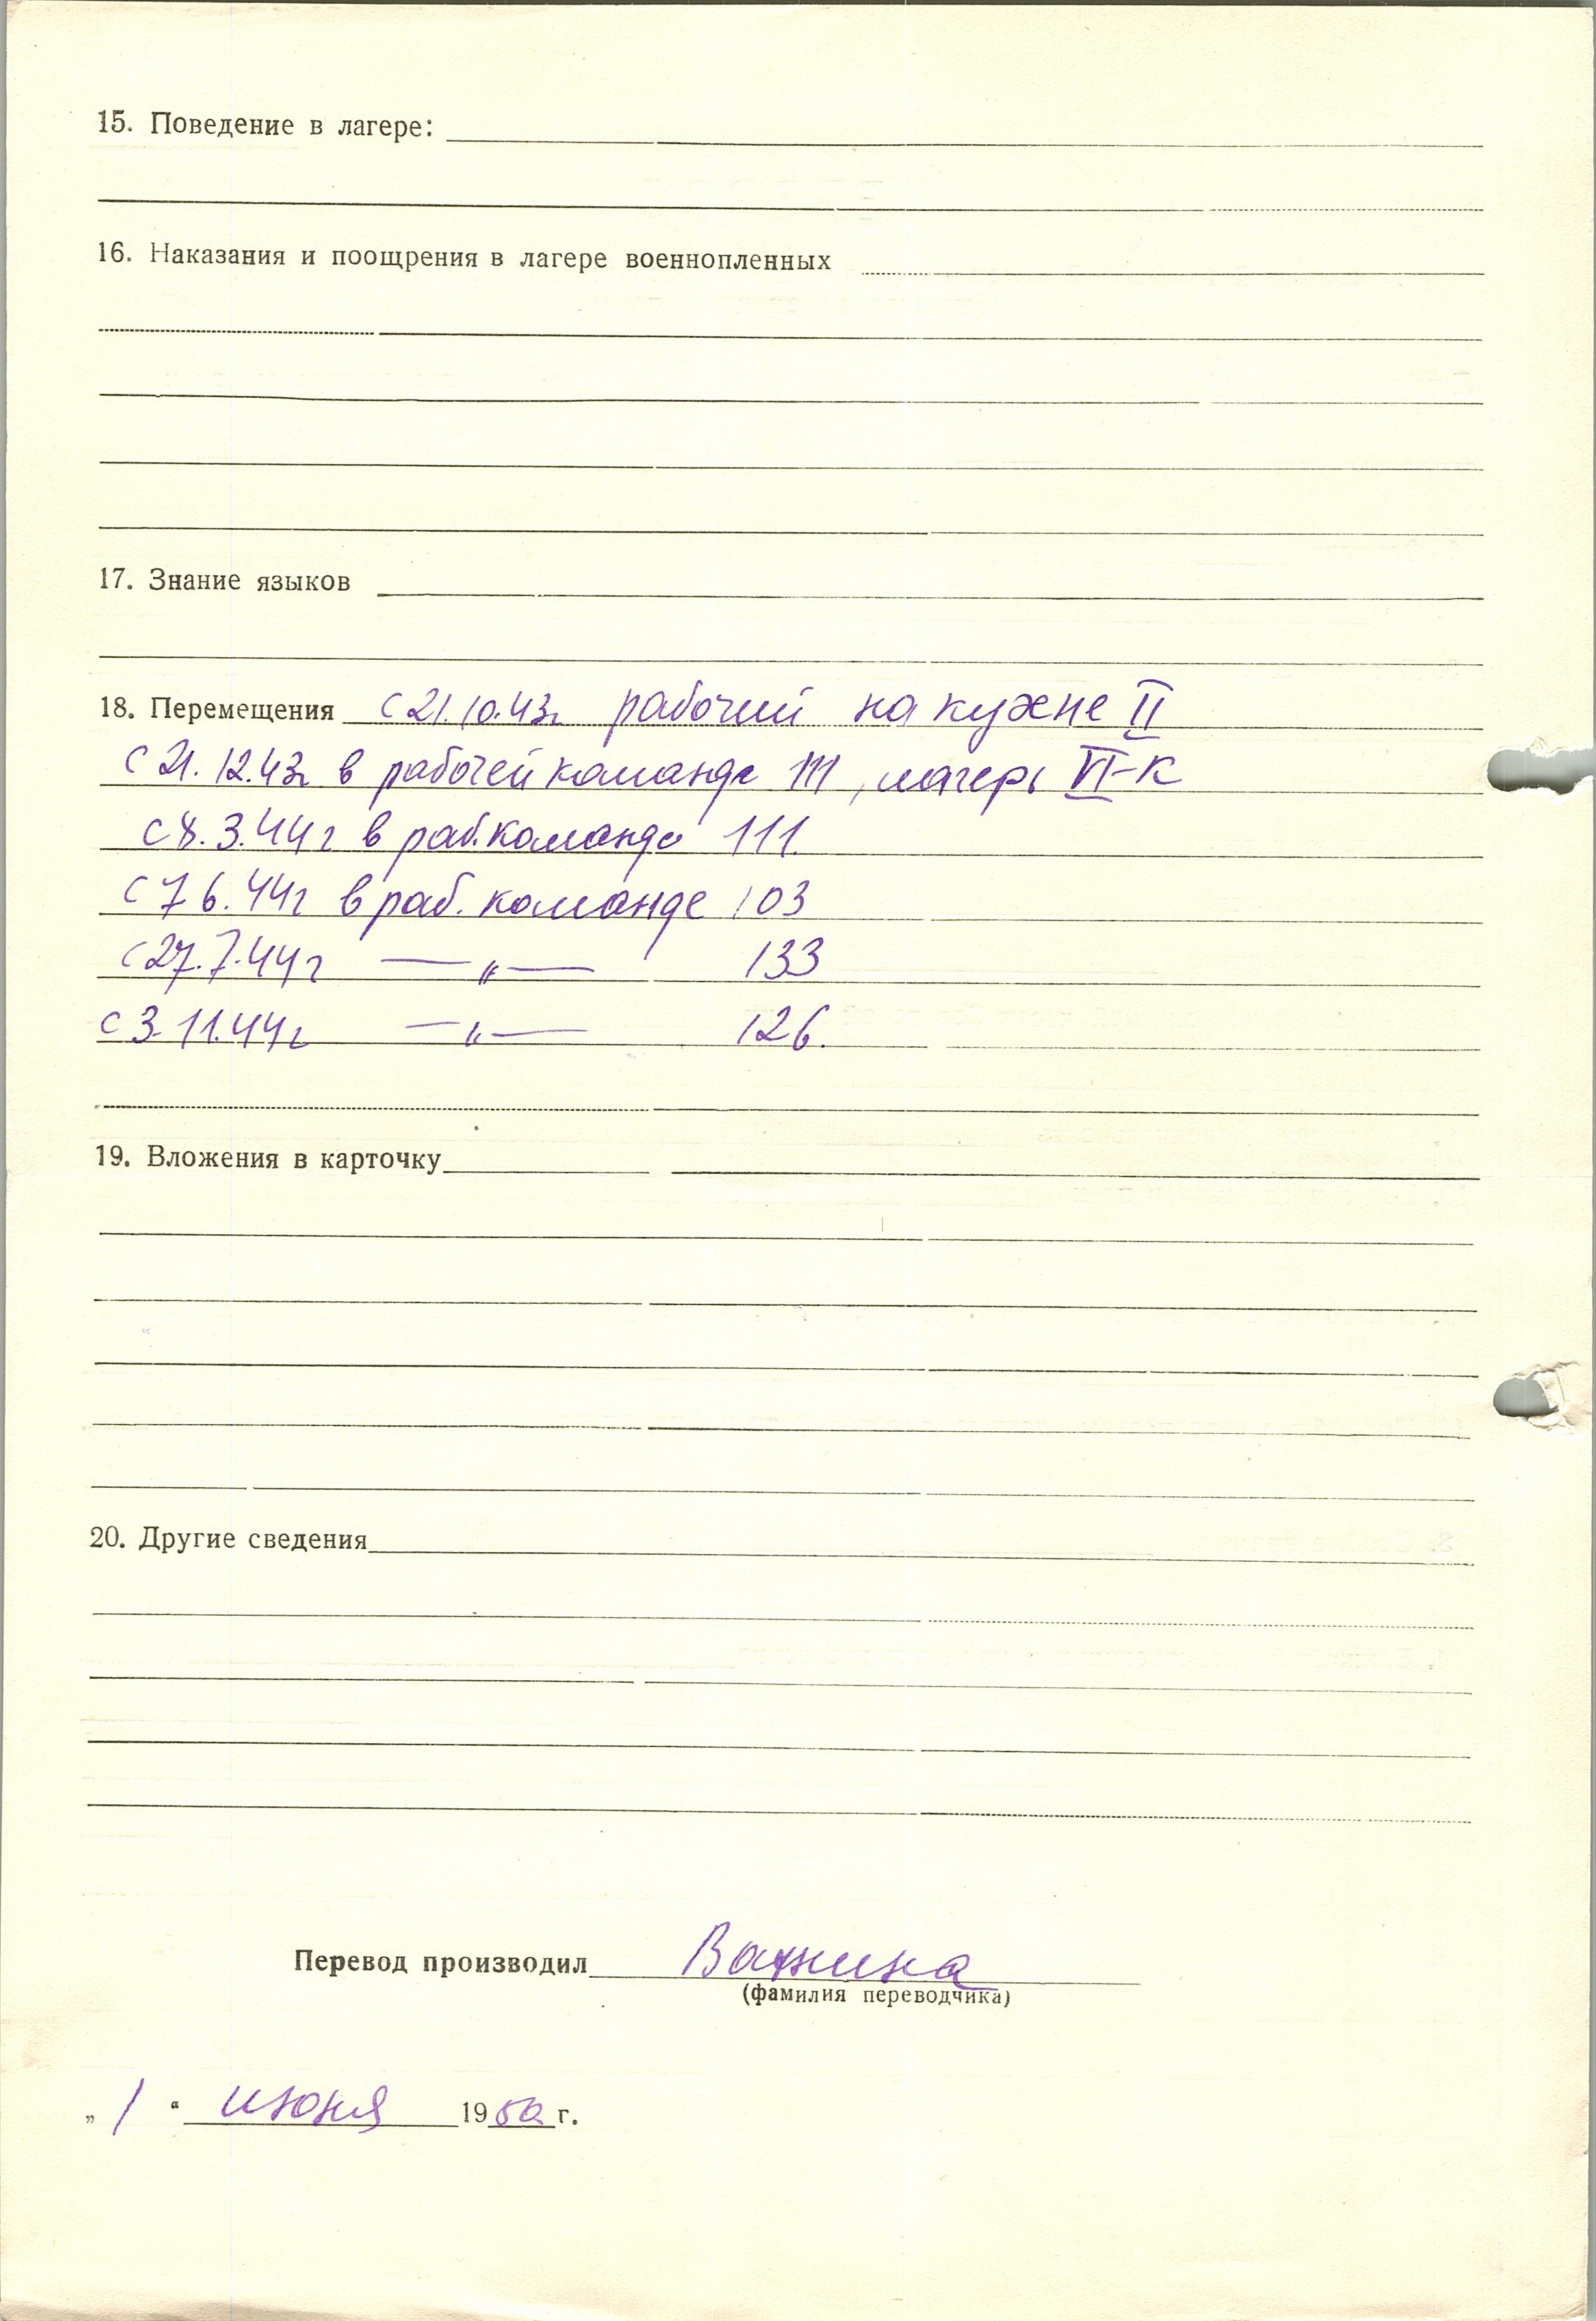 15. Поведение в лагере:
16. Наказания и поощрения в лагере военнопленных
17. Знание языков
18. Перемещения с 21.10.43г. рабочий на кухне II
с 21.12.43г в рабочей команде 111, лагерь VI-К
с 8.3.44г в раб. команде 111.
с 7 6.44г в раб. команде 103
с 27.7.44г —„— 133
с 3.11.44г —„— 126.
19. Вложения в карточку
20. Другие сведения
Перевод производил
(фамилия переводчика)
„1“ июня 1950 г.